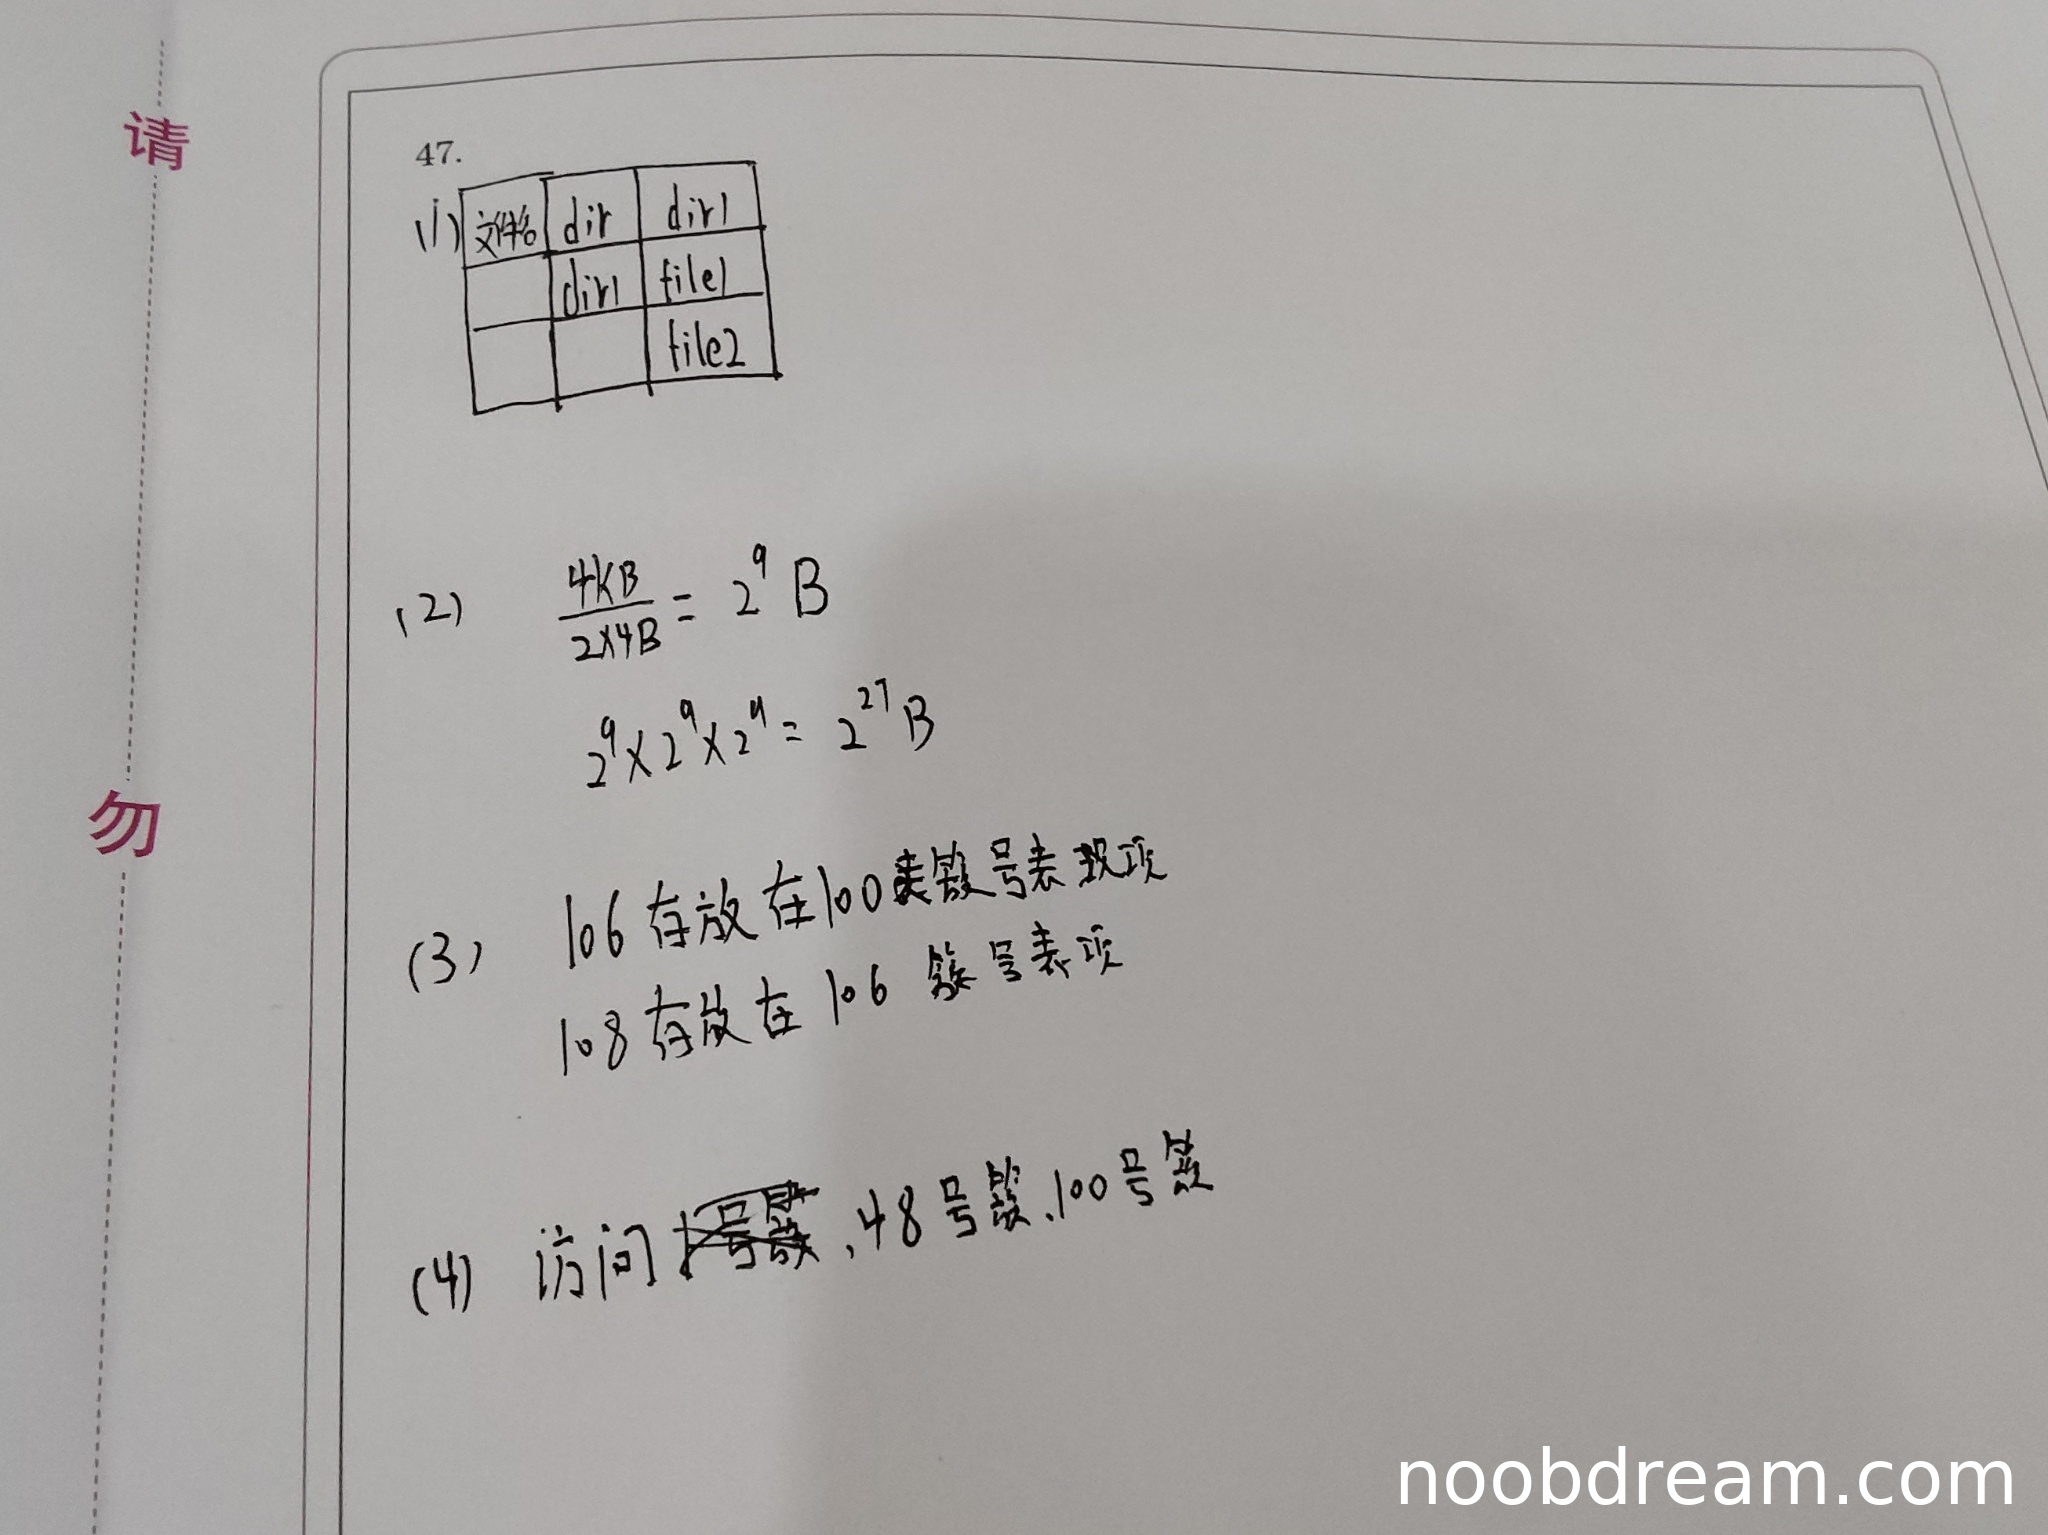 请
勿
47.
(1)
文件名 dir dir1
dir1 file1
file2
(2) 4KB / 2×4B = 2^9 B
2^9 × 2^9 × 2^9 = 2^27 B
(3) 106存放在100簇号表项
108存放在106簇号表项
(4) 访问 1号簇,48号簇、100号簇
noobdream.com